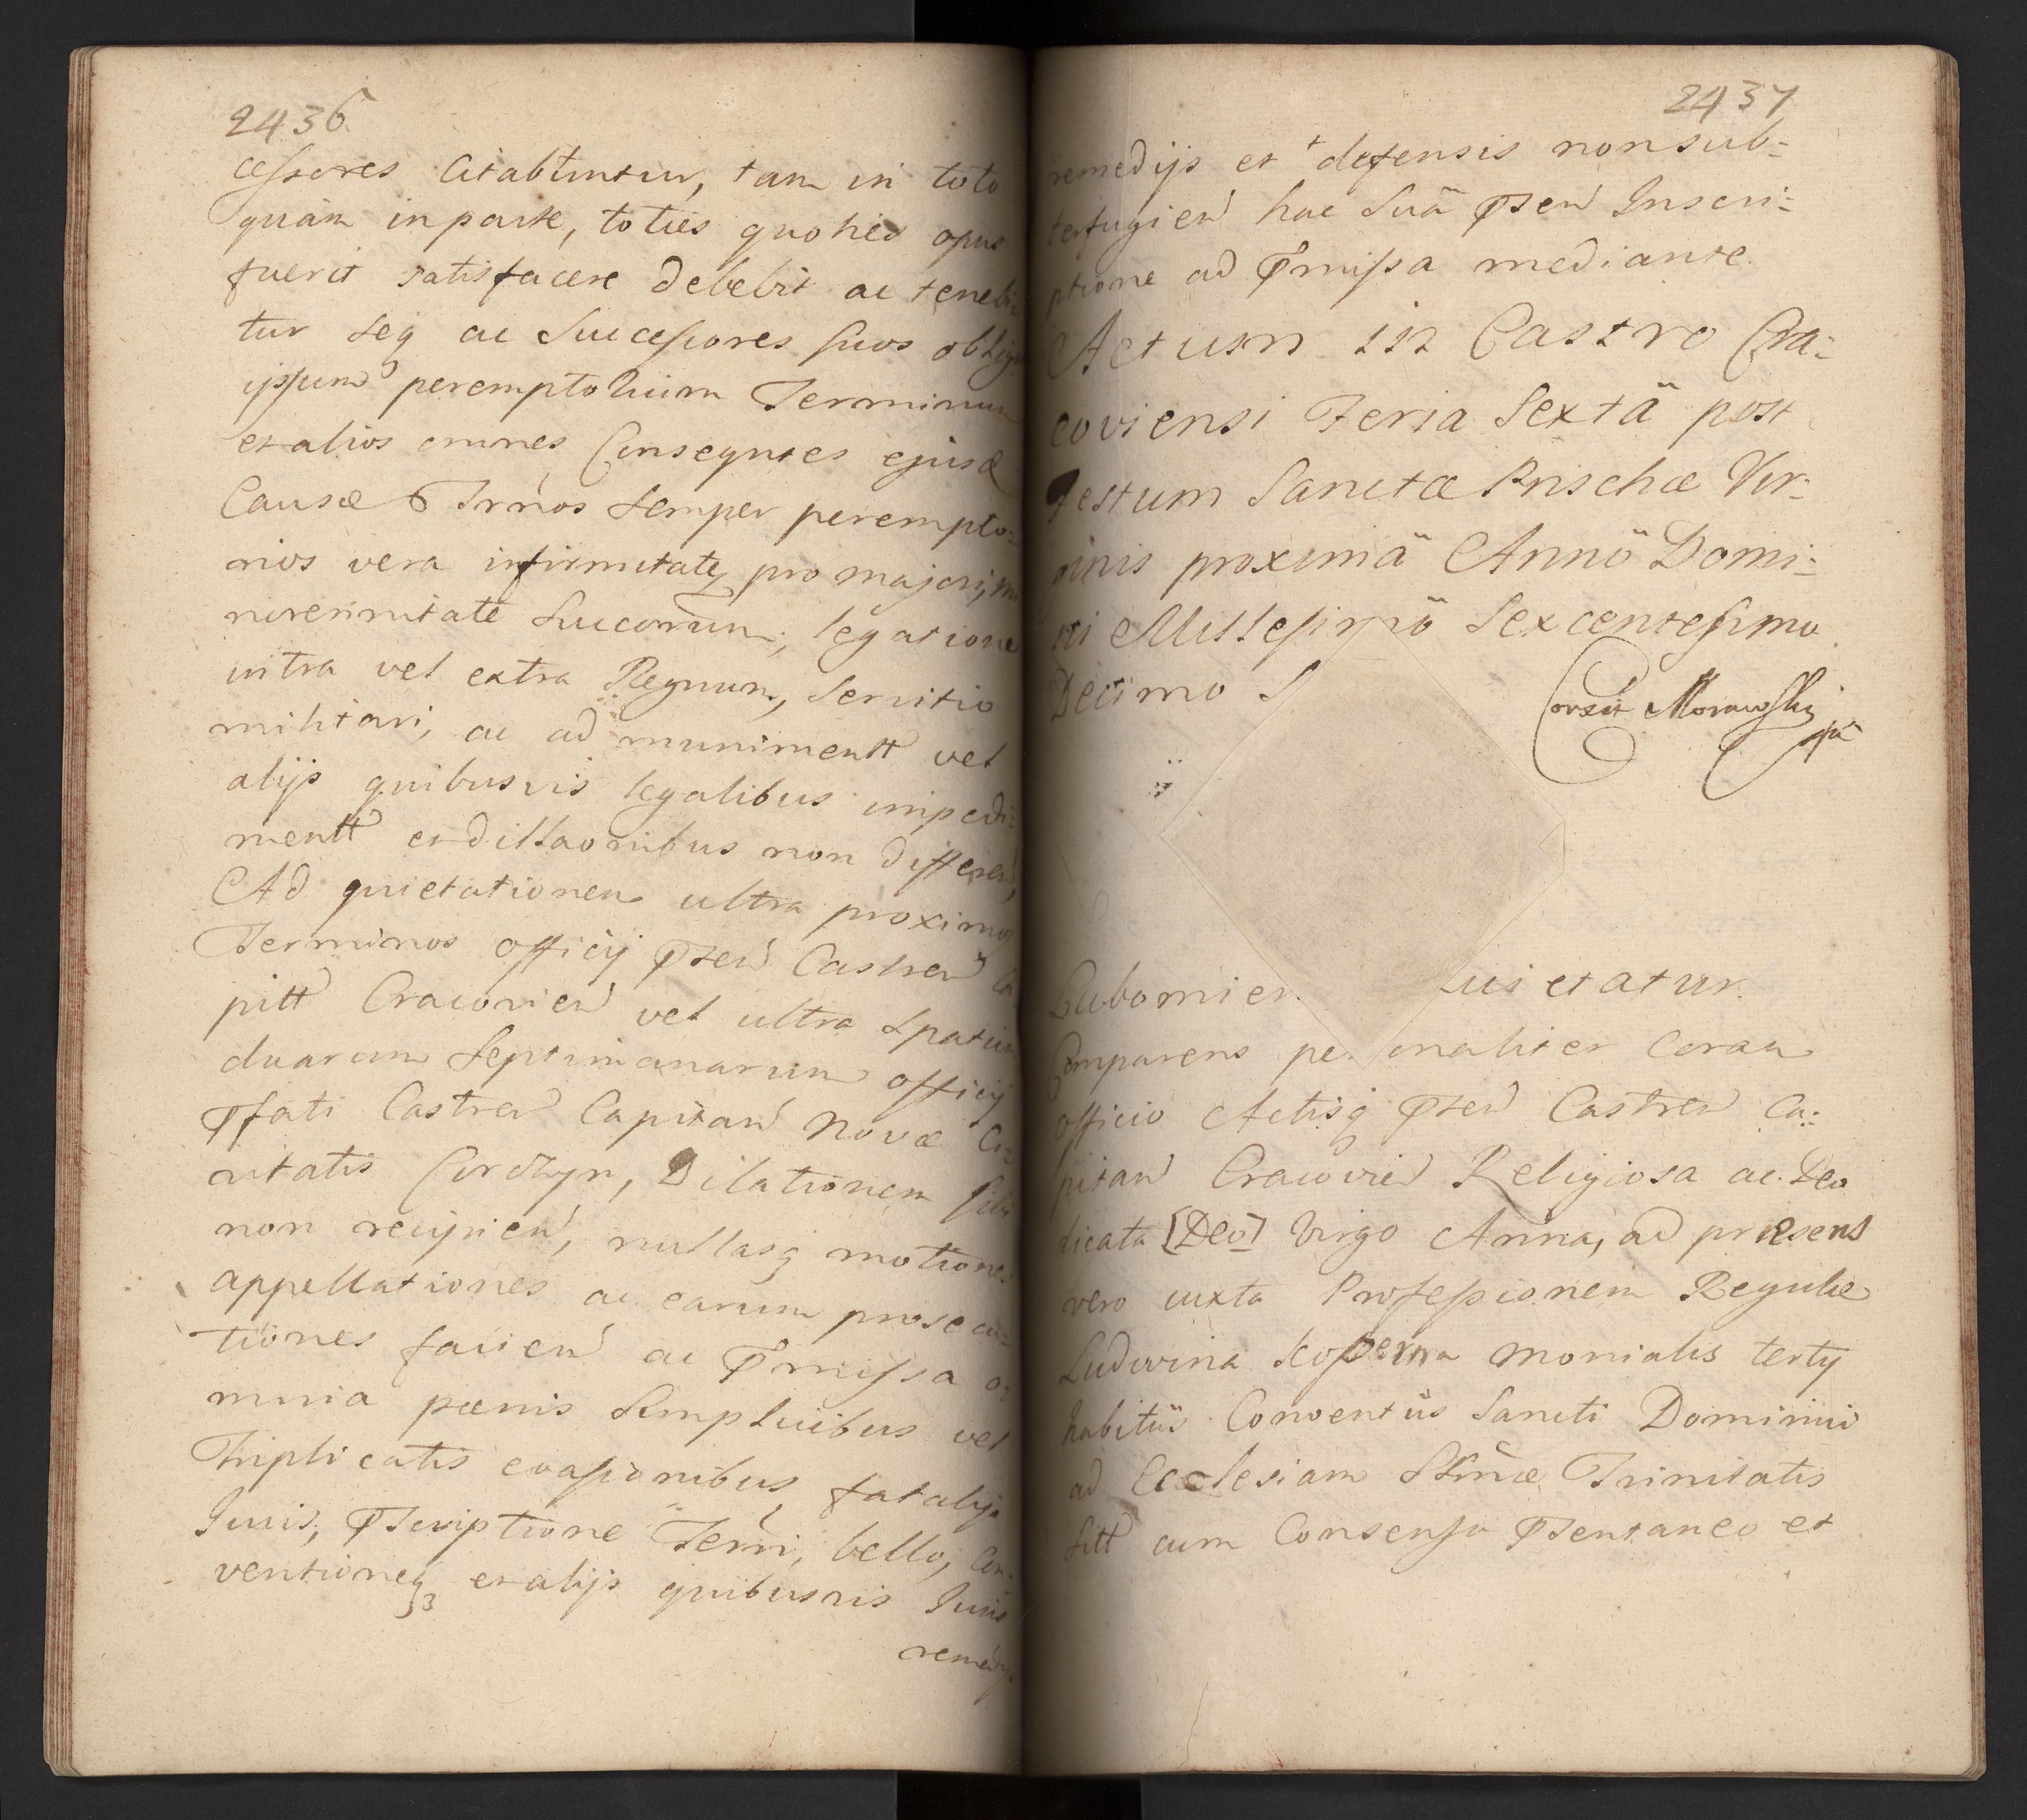 2436
cessores Citabuntur, tam in toto
quàm in parte, toties quoties opus
fuerit satisfacere debebit ac tenebi
tur seq ac Successores suos oblig
ipsum peremptorium Terminum
et alios omnes Consequtes ejusd
Causæ Trnos semper perempto=
rios vera infirmitateq pro majori, mi
noremnitate Lucorum, legatione
intra vel extra Regnum, Servitio
militari, ac ad munimentt vel
alijs quibusvis legalibus impedi=
mentt et dillaonibus non differen,
Ad quietationem ultra proximos
Terminos officij Psen Castren Ca
pitt Cracovien vel ultra spatiu
duarum Septimanarum officij
Pfati Castren Capitan Novæ Ci=
vitatis Corczyn, Dilationem sibi
non recipien, nullasq motiones
appellationes ac earum prosecu=
tiones facien ac Pmissa o
mnia pœnis simplicibus vel
Triplicatis evasionibus, fatalijs
Juris, Pscriptione Terrj, bello, Con=
ventioneq3 et alijs quibusvis Juris
remedijs
2437
remedijs et defensis non sub=
terfugien hac suä Psen Inscri=
ptione ad Pmissa mediante.
Actum in Castro Cra=
coviensi Feria Sextä post
festum Sanctæ Prischæ Vir=
ginis proximä Annö Domi=
ni Millesimö Sexcentesimo
Decimo S
Corxit Morawski
mp
Lubomier. uietatur.
Comparens pe. onaliter Coram
officio Actisq Psen Castren Ca=
pitan Cracovien Religiosa ac Deo
dicata [Deo] Virgo Anna, ad præsens
vero iuxta Professionem Regulæ
Ludwina monialis tertij
habitüs Conventüs Sancti Dominici
ad Ecclesiam SSmæ Trinitatis
sitt cum Consensu Psentaneo et